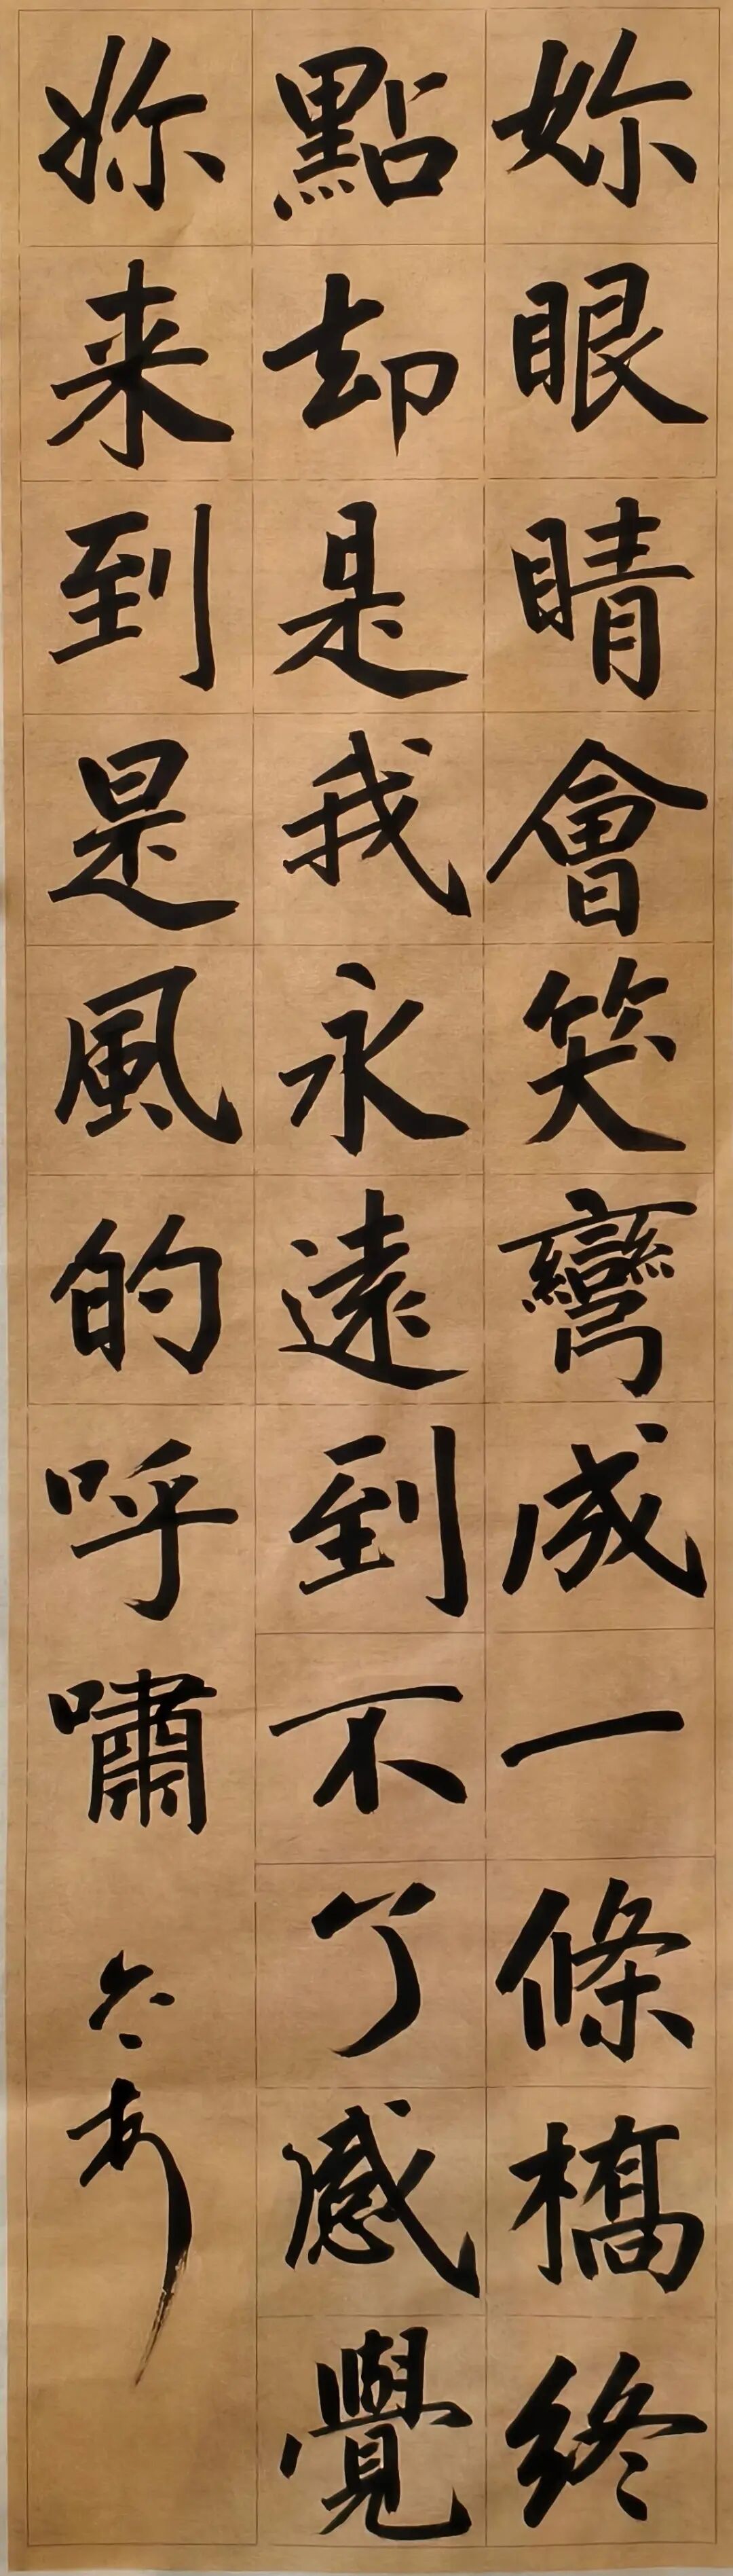 妳眼睛會笑彎成一條橋終
點却是我永遠到不了感覺
妳来到是風的呼嘯